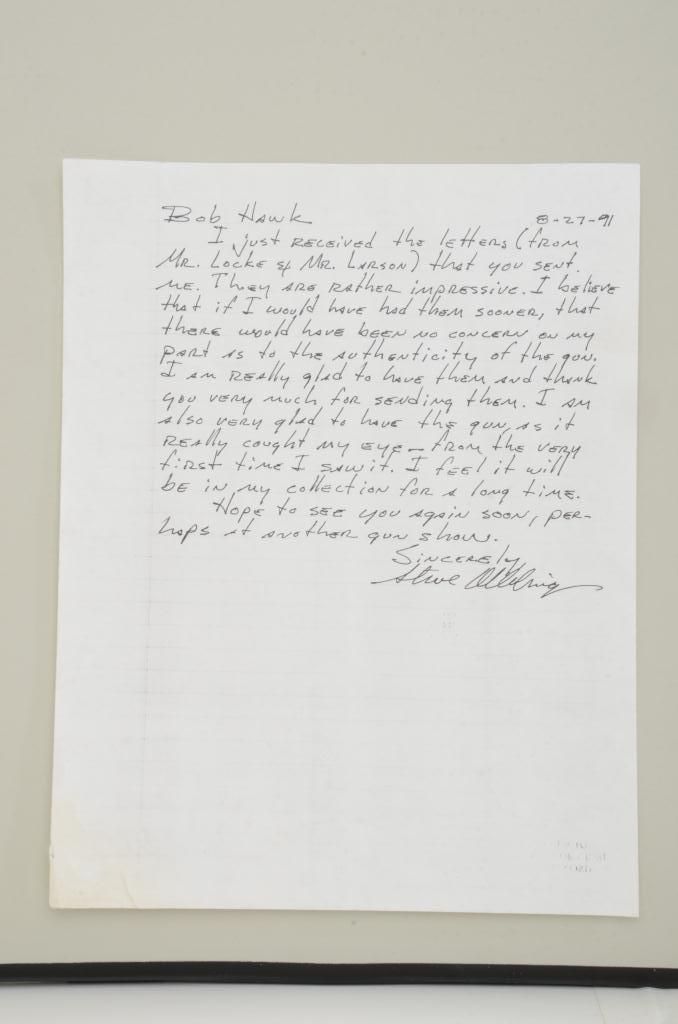 Bob Hawk 8-27-91
I just received the letters (from
Mr. Locke & Mr. Larson) that you sent
me. They are rather impressive. I believe
that if I would have had them sooner, that
there would have been no concern on my
part as to the authenticity of the gun.
I am really glad to have them and thank
you very much for sending them. I am
also very glad to have the gun, as it
really cought my eye - from the very
first time I saw it. I feel it will
be in my collection for a long time.
Hope to see you again soon, per-
haps at another gun show.
Sincerely,
Steve